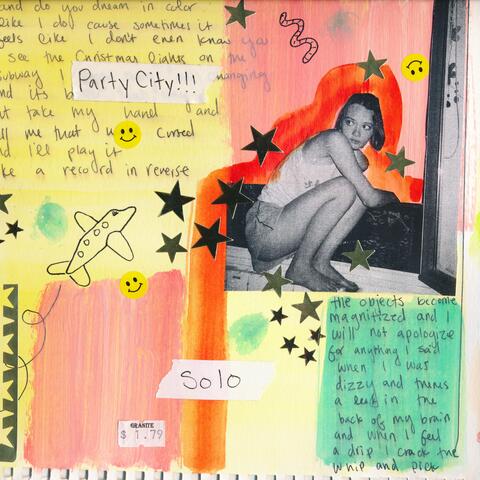 and do you dream in color
like I do cause sometimes it
feels like I don't even know you
I see the Christmas lights on the
subway I changing
and its b
Party City!!!
but take my hand and
tell me that w cursed
and i'll play it
like a record in reverse
Solo
GRANITE
$ 1.79
the objects become
magnitized and I
will not apologize
for anything I said
when I was
dizzy and theres
a leak in the
back of my brain
and when I feel
a drip I crack the
whip and pick